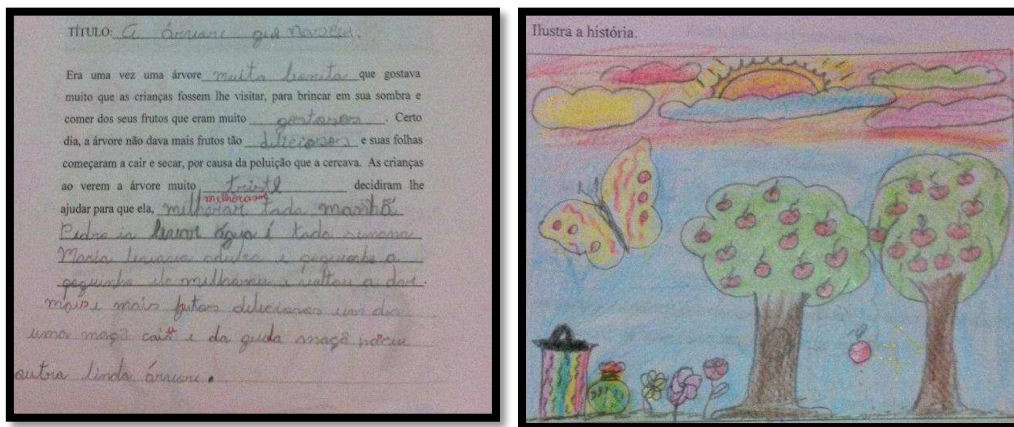 TÍTULO: A árvore que nasceu.
Era uma vez uma árvore muito bonita que gostava
muito que as crianças fossem lhe visitar, para brincar em sua sombra e
comer dos seus frutos que eram muito gostosos. Certo
dia, a árvore não dava mais frutos tão deliciosos e suas folhas
começaram a cair e secar, por causa da poluição que a cercava. As crianças
ao verem a árvore muito triste decidiram lhe
melhorasse
ajudar para que ela, melhorar toda manhã
Pedro ia levar água i toda semana
Maria levava adubo e
ele melhorou e voltou a dar
mais e mais frutos deliciosos um dia
uma maçã caiu e da maçã nasceu
outra linda árvore.
Ilustra a história.